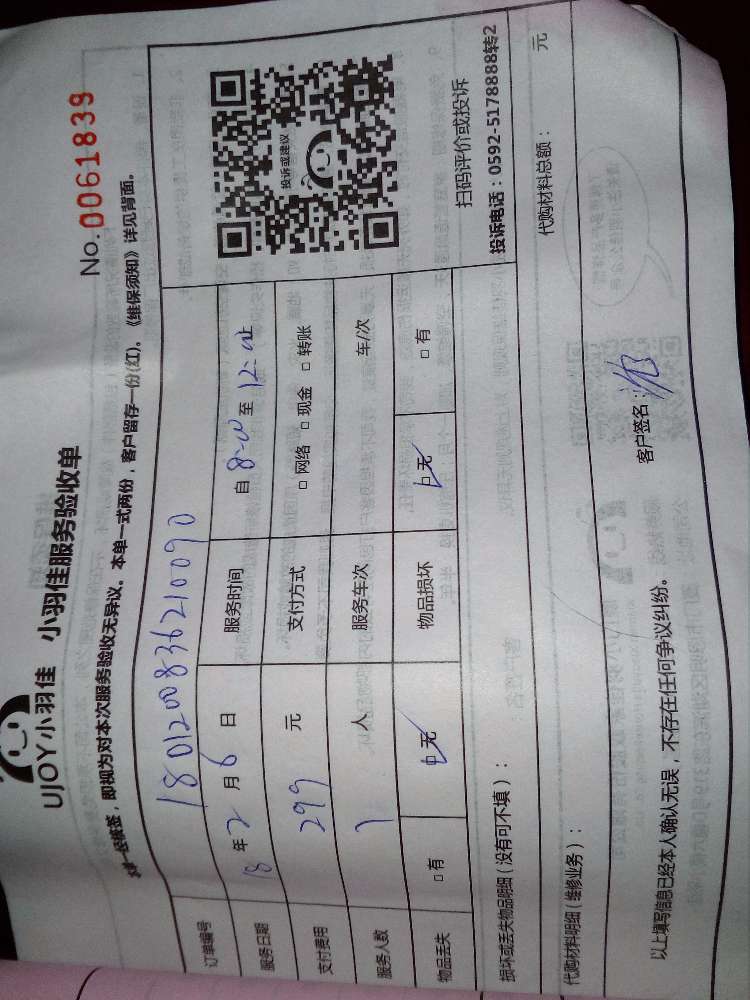 UJOY小羽佳 小羽佳服务验收单
No. 0061839
本单一经核签，即视为对本次服务验收无异议。本单一式两份，客户留存一份(红)。《维保须知》详见背面。
订单编号 1801200836210090
服务日期 18 年 2 月 6 日 服务时间 自 8:00 至 12:00
支付费用 299 元 支付方式 □ 网络 □ 现金 □ 转账
服务人数 1 人 服务车次 车/次
物品丢失 □ 有 □ 无 物品损坏 □ 无 □ 有
投诉或建议
扫码评价或投诉
投诉电话：0592-5178888转2
损坏或丢失物品明细（没有可不填）：
代购材料明细（维修业务）： 代购材料总额： 元
以上填写信息已经本人确认无误，不存在任何争议纠纷。 客户签名：